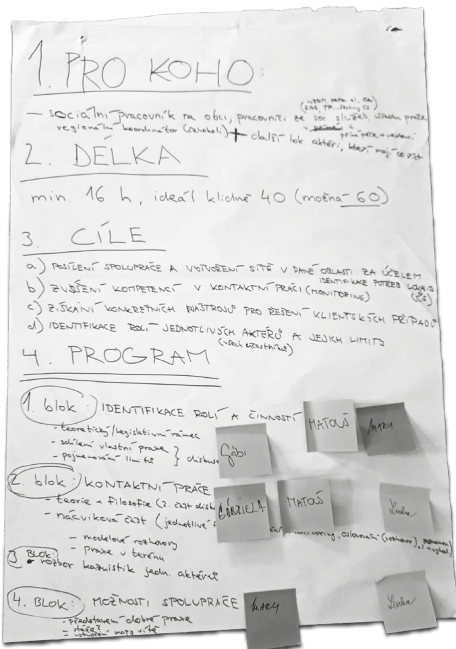 1. PRO KOHO:
– sociální pracovník na obci, pracovníci ze soc služeb, úřadu práce
regionální koordinátor (cekoli) + další lok. aktéři, kteří mají co říct
2. DÉLKA
min. 16 h, ideál klidně 40 (možná 60)
3. CÍLE
a) POSÍLENÍ SPOLUPRÁCE A VYTVOŘENÍ SÍTĚ V DANÉ OBLASTI ZA ÚČELEM
IDENTIFIKACE POTŘEB
b) ZVÝŠENÍ KOMPETENCÍ V KONTAKTNÍ PRÁCI (MONITORING)
c) ZÍSKÁNÍ KONKRETNÍCH NÁSTROJŮ PRO ŘEŠENÍ KLIENTSKÝCH PŘÍPADŮ
d) IDENTIFIKACE ROLÍ JEDNOTLIVÝCH AKTÉRŮ A JEJICH LIMITŮ
(všech účastníků)
4. PROGRAM
1. blok: IDENTIFIKACE ROLÍ A ČINNOSTÍ
- teoretický/legislativní rámec
- sdílení vlastní praxe
- pojmenování limitů } diskuse
Gábi
MATOUŠ
MARY
2. blok: KONTAKTNÍ PRÁCE
- teorie a filosofie (2. část disk
- nácviková část (jednotlivé
- modelové rozhovory
- praxe v terénu
GABRIELA
MATOUŠ
Lenka
3. BLOK:
- rozbor kazuistik jedn. aktérů
4. BLOK: MOŽNOSTI SPOLUPRÁCE
- představení dobré praxe
- stáže?
MARY
Lenka